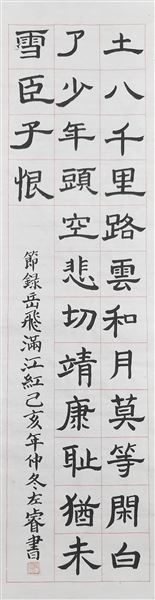 土八千里路雲和月莫等閑白
了少年頭空悲切靖康耻猶未
雪臣子恨
節録岳飛滿江紅己亥年仲冬左睿書